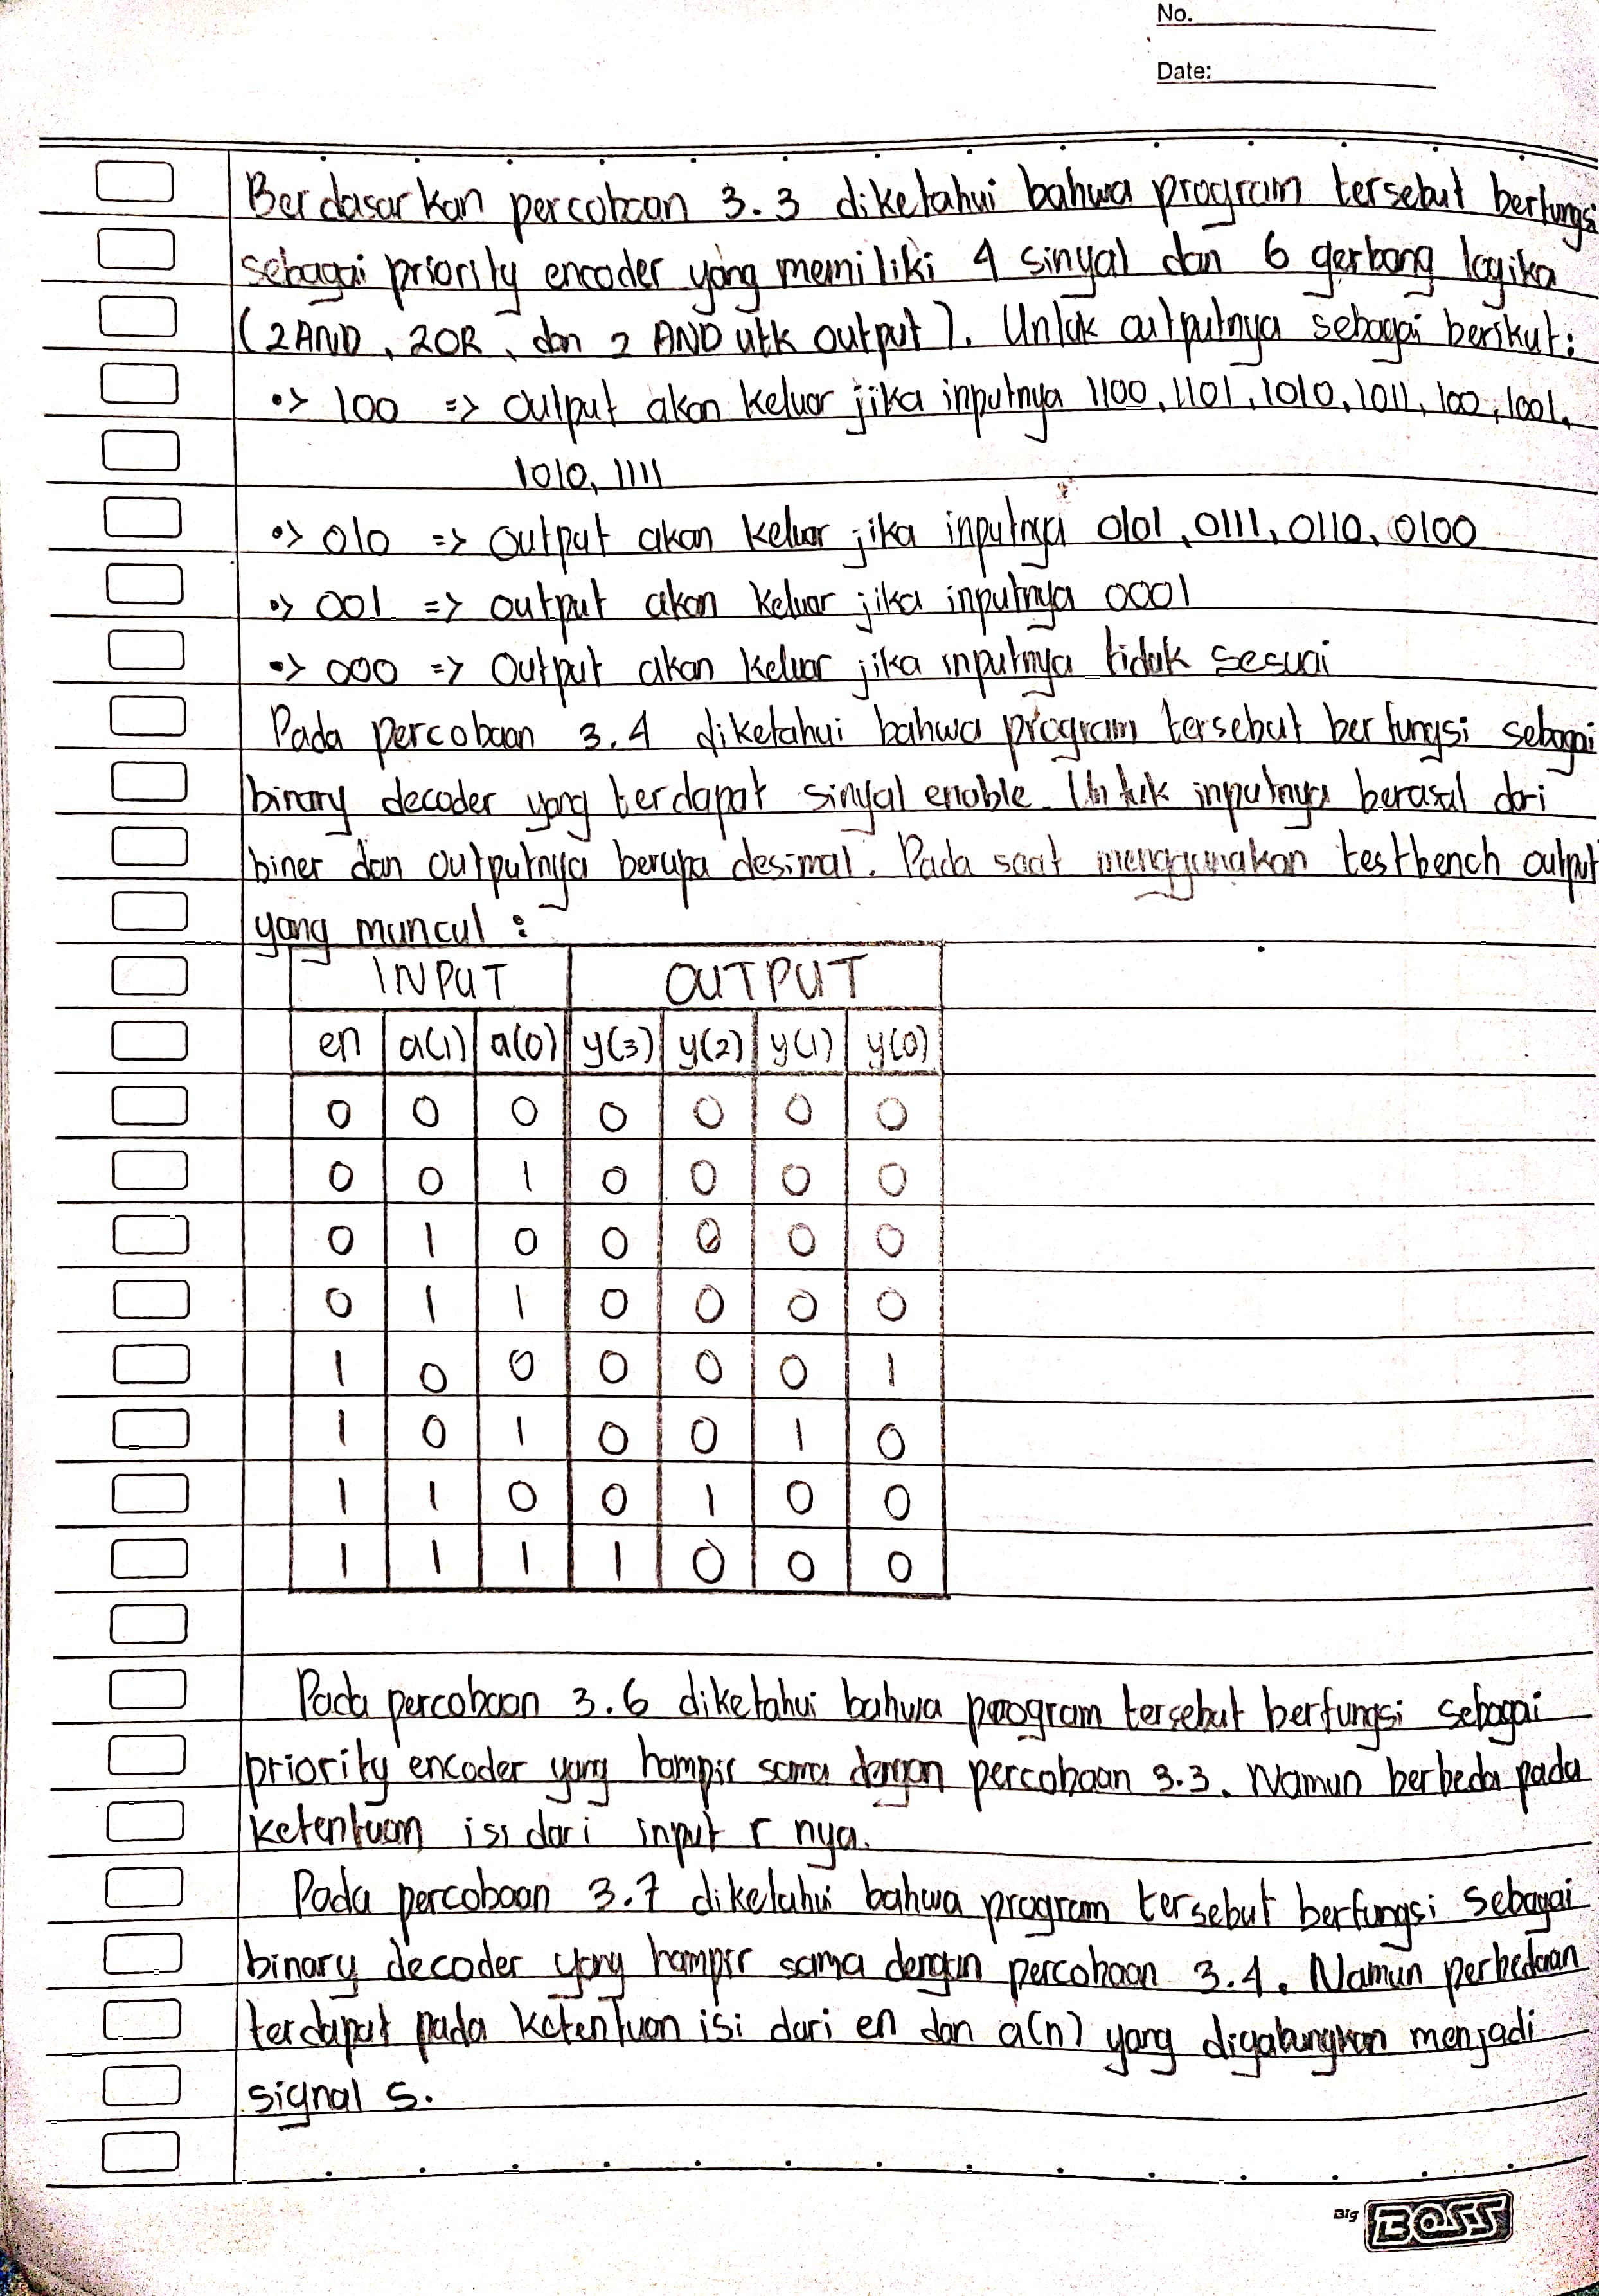 No.
Date:
Berdasarkan percobaan 3.3 diketahui bahwa program tersebut berfungsi
sebagai priority encoder yang memiliki 4 sinyal dan 6 gerbang logika
(2AND, 2OR, dan 2 AND utk output). Untuk outputnya sebagai berikut:
•> 100 => output akan keluar jika inputnya 1100, 1101, 1010, 1011, 100, 1001,
1010, 1111
•> 010 => output akan keluar jika inputnya 0101, 0111, 0110, 0100
•> 001 => output akan keluar jika inputnya 0001
•> 000 => output akan keluar jika inputnya tidak sesuai
Pada percobaan 3.4 diketahui bahwa program tersebut berfungsi sebagai
binary decoder yang terdapat sinyal enable. Untuk inputnya berasal dari
biner dan outputnya berupa desimal. Pada saat menggunakan testbench output
yang muncul :
INPUT OUTPUT
en a(1) a(0) y(3) y(2) y(1) y(0)
0 0 0 0 0 0 0
0 0 1 0 0 0 0
0 1 0 0 0 0 0
0 1 1 0 0 0 0
1 0 0 0 0 0 1
1 0 1 0 0 1 0
1 1 0 0 1 0 0
1 1 1 1 0 0 0
Pada percobaan 3.6 diketahui bahwa program tersebut berfungsi sebagai
priority encoder yang hampir sama dengan percobaan 3.3. Namun berbeda pada
ketentuan isi dari input r nya.
Pada percobaan 3.7 diketahui bahwa program tersebut berfungsi sebagai
binary decoder yang hampir sama dengan percobaan 3.4. Namun perbedaan
terdapat pada ketentuan isi dari en dan a(n) yang digabungkan menjadi
signal s.
Big BOSS